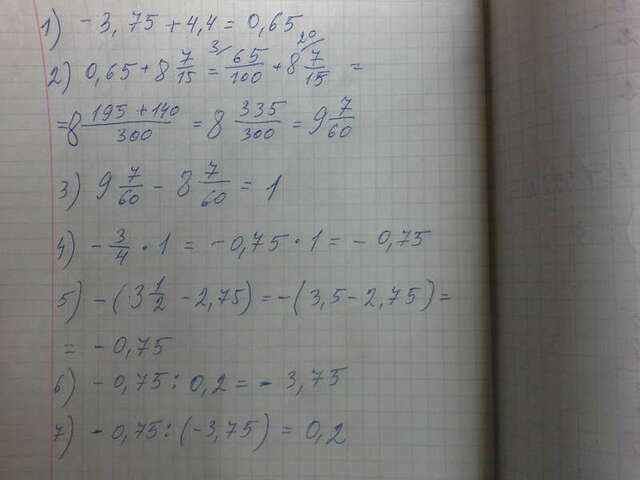 1) -3,75 + 4,4 = 0,65
2) 0,65 + 8 7/15 = 3/ 65/100 + 8 20/ 7/15 =
= 8 (195 + 140)/300 = 8 335/300 = 9 7/60
3) 9 7/60 - 8 7/60 = 1
4) - 3/4 · 1 = -0,75 · 1 = -0,75
5) -(3 1/2 - 2,75) = -(3,5 - 2,75) =
= -0,75
6) -0,75 : 0,2 = -3,75
7) -0,75 : (-3,75) = 0,2